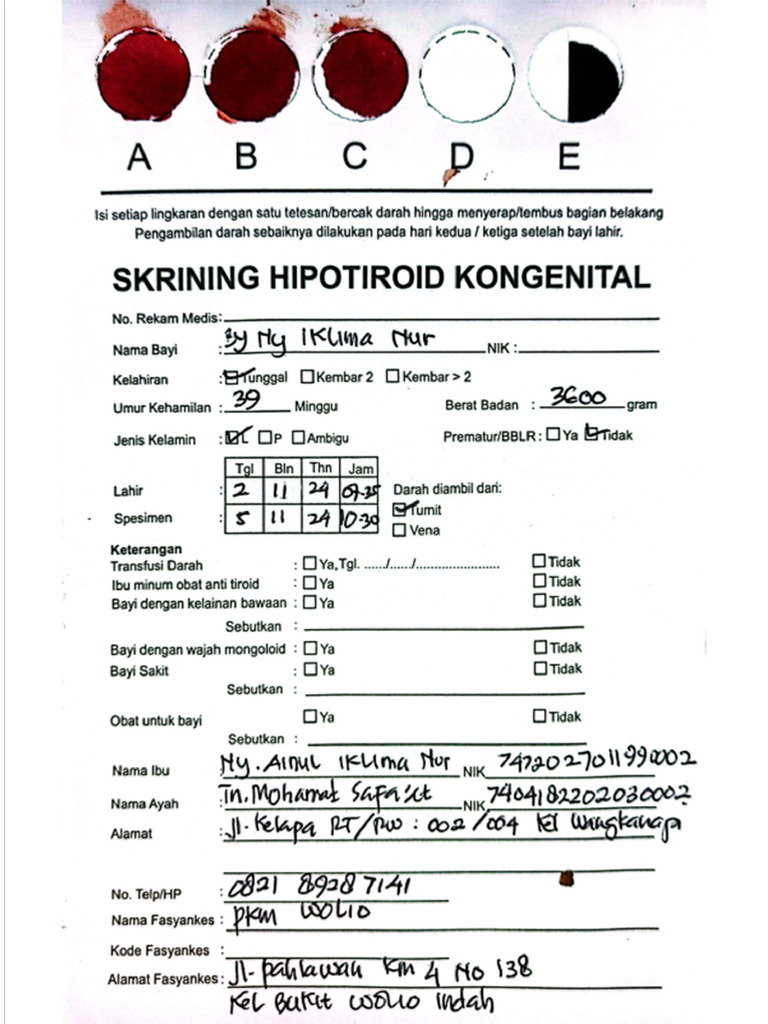 A B C D E
Isi setiap lingkaran dengan satu tetesan/bercak darah hingga menyerap/tembus bagian belakang
Pengambilan darah sebaiknya dilakukan pada hari kedua / ketiga setelah bayi lahir.
SKRINING HIPOTIROID KONGENITAL
No. Rekam Medis:
Nama Bayi : By Ny Iklima Nur NIK :
Kelahiran : Tunggal Kembar 2 Kembar > 2
Umur Kehamilan : 39 Minggu Berat Badan : 3600 gram
Jenis Kelamin : L P Ambigu Prematur/BBLR : Ya Tidak
Tgl Bln Thn Jam
Lahir : 2 11 24 Darah diambil dari:
Spesimen : 5 11 24 10.30 Tumit
Vena
Keterangan
Transfusi Darah : Ya,Tgl. ....../....../........................ Tidak
Ibu minum obat anti tiroid : Ya Tidak
Bayi dengan kelainan bawaan : Ya Tidak
Sebutkan :
Bayi dengan wajah mongoloid : Ya Tidak
Bayi Sakit : Ya Tidak
Sebutkan :
Obat untuk bayi Ya Tidak
Sebutkan :
Nama Ibu : Ny. Ainul Iklima Nur NIK 7472027011990002
Nama Ayah : Tn. Mohamat NIK 7404182202030002
Alamat : Jl. Kelapa RT/RW : 002 /004 Kel Wangkanapi
No. Telp/HP : 0821 8928 7141
Nama Fasyankes : PKM WOLIO
Kode Fasyankes :
Alamat Fasyankes : Jl. Pahlawan Km 4 No 138
Kel Bukit Wolio Indah